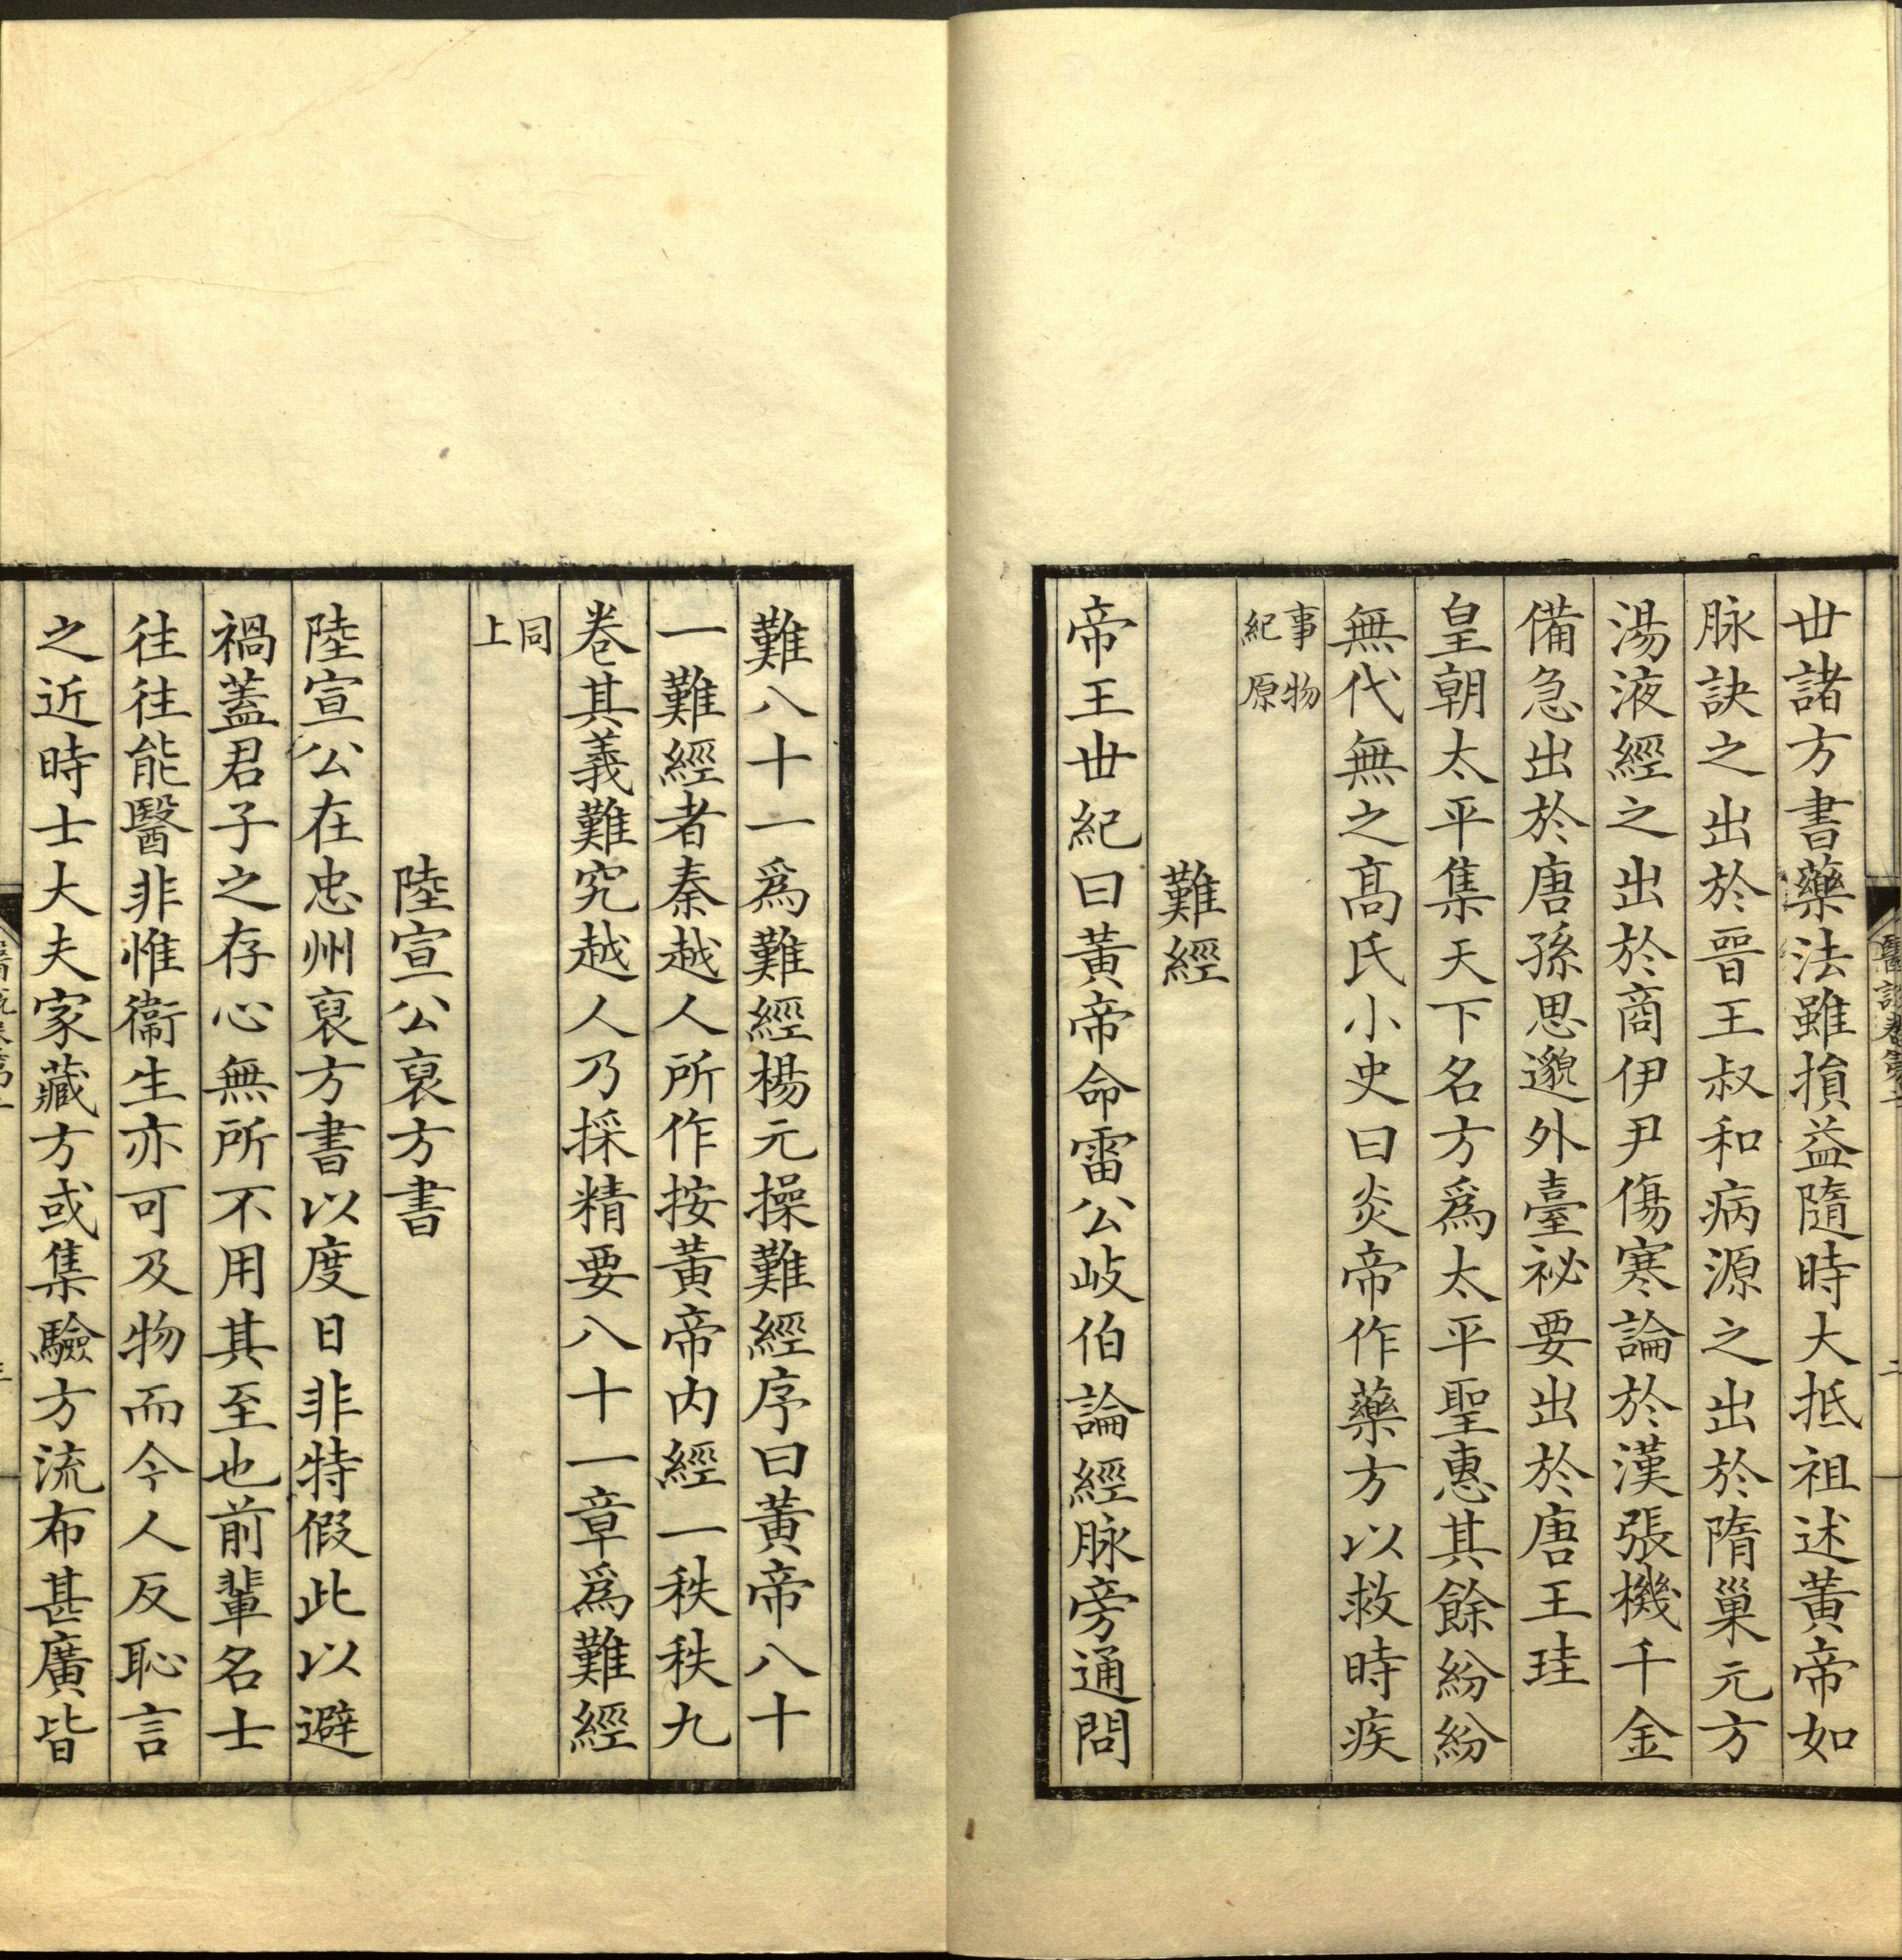 世諸方書藥法雖損益隨時大抵祖述黃帝如
脉訣之出於晉王叔和病源之出於隋巢元方
湯液經之出於商伊尹傷寒論於漢張機千金
備急出於唐孫思邈外臺祕要出於唐王珪
皇朝太平集天下名方爲太平聖惠其餘紛紛
無代無之髙氏小史曰炎帝作藥方以救時疾
事物
紀原
難經
帝王世紀曰黃帝命雷公岐伯論經脉旁通問
難八十一爲難經楊元操難經序曰黃帝八十
一難經者秦越人所作按黃帝内經一秩秩九
卷其義難究越人乃採精要八十一章爲難經
同
上
陸宣公裒方書
陸宣公在忠州裒方書以度日非特假此以避
禍蓋君子之存心無所不用其至也前輩名士
往往能醫非惟衞生亦可及物而今人反恥言
之近時士大夫家藏方或集驗方流布甚廣皆